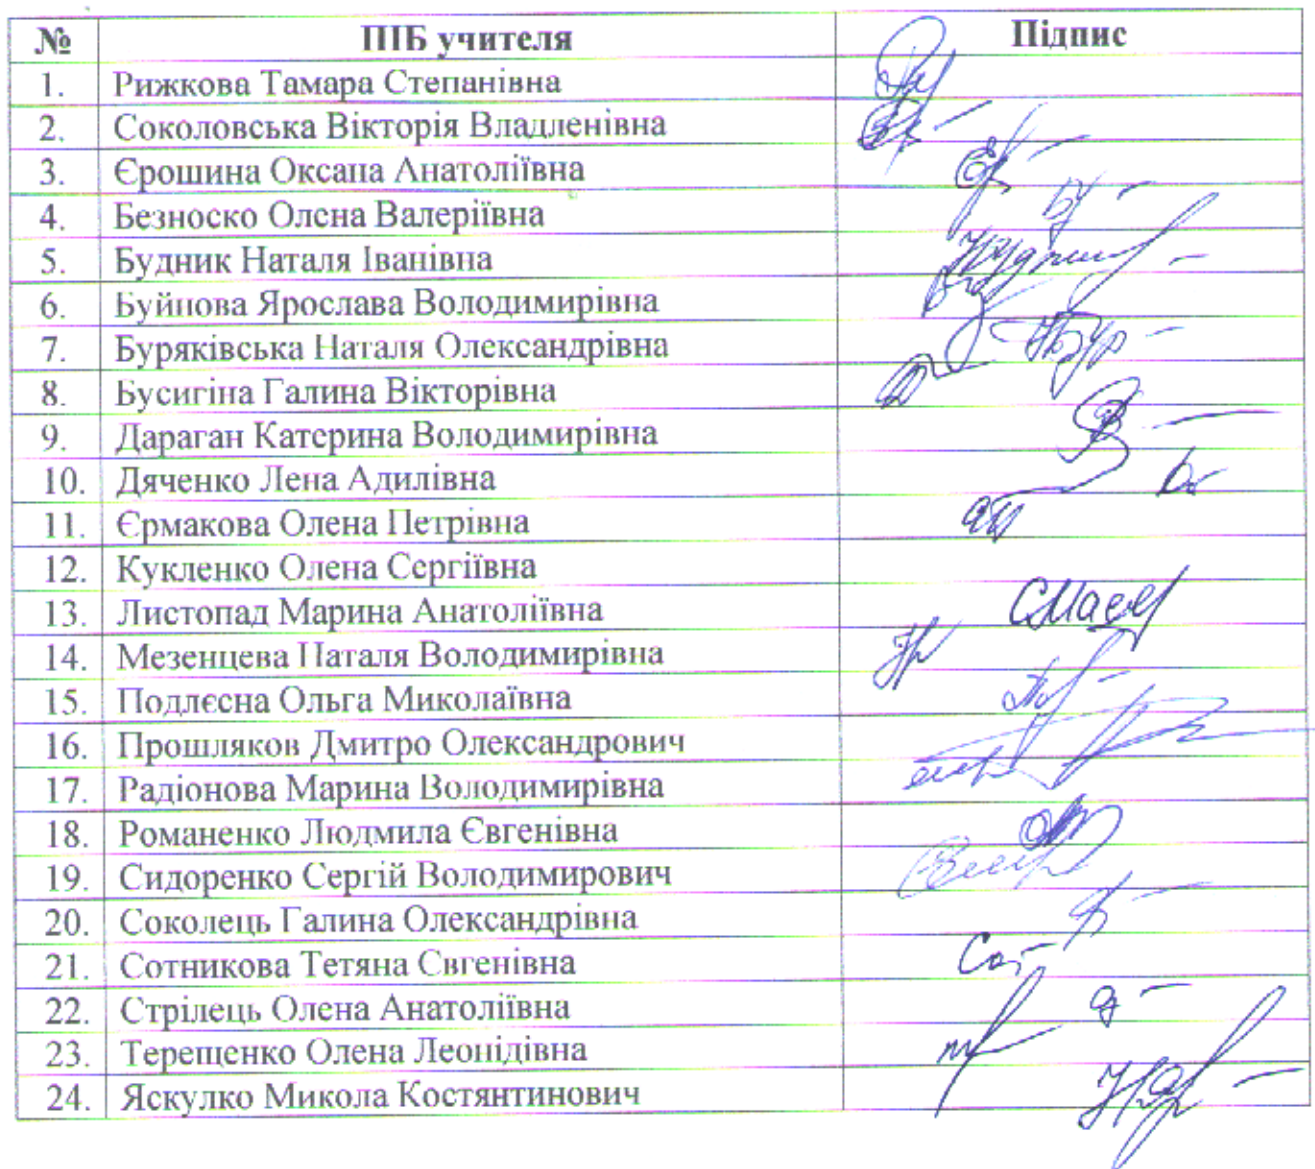 № ПІБ учителя Підпис
1. Рижкова Тамара Степанівна
2. Соколовська Вікторія Владленівна
3. Єрошина Оксана Анатоліївна
4. Безноско Олена Валеріївна
5. Будник Наталя Іванівна
6. Буйнова Ярослава Володимирівна
7. Буряківська Наталя Олександрівна
8. Бусигіна Галина Вікторівна
9. Дараган Катерина Володимирівна
10. Дяченко Лена Адилівна
11. Єрмакова Олена Петрівна
12. Кукленко Олена Сергіївна
13. Листопад Марина Анатоліївна
14. Мезенцева Наталя Володимирівна
15. Подлєсна Ольга Миколаївна
16. Прошляков Дмитро Олександрович
17. Радіонова Марина Володимирівна
18. Романенко Людмила Євгенівна
19. Сидоренко Сергій Володимирович
20. Соколець Галина Олександрівна
21. Сотникова Тетяна Євгенівна
22. Стрілець Олена Анатоліївна
23. Терещенко Олена Леонідівна
24. Яскулко Микола Костянтинович